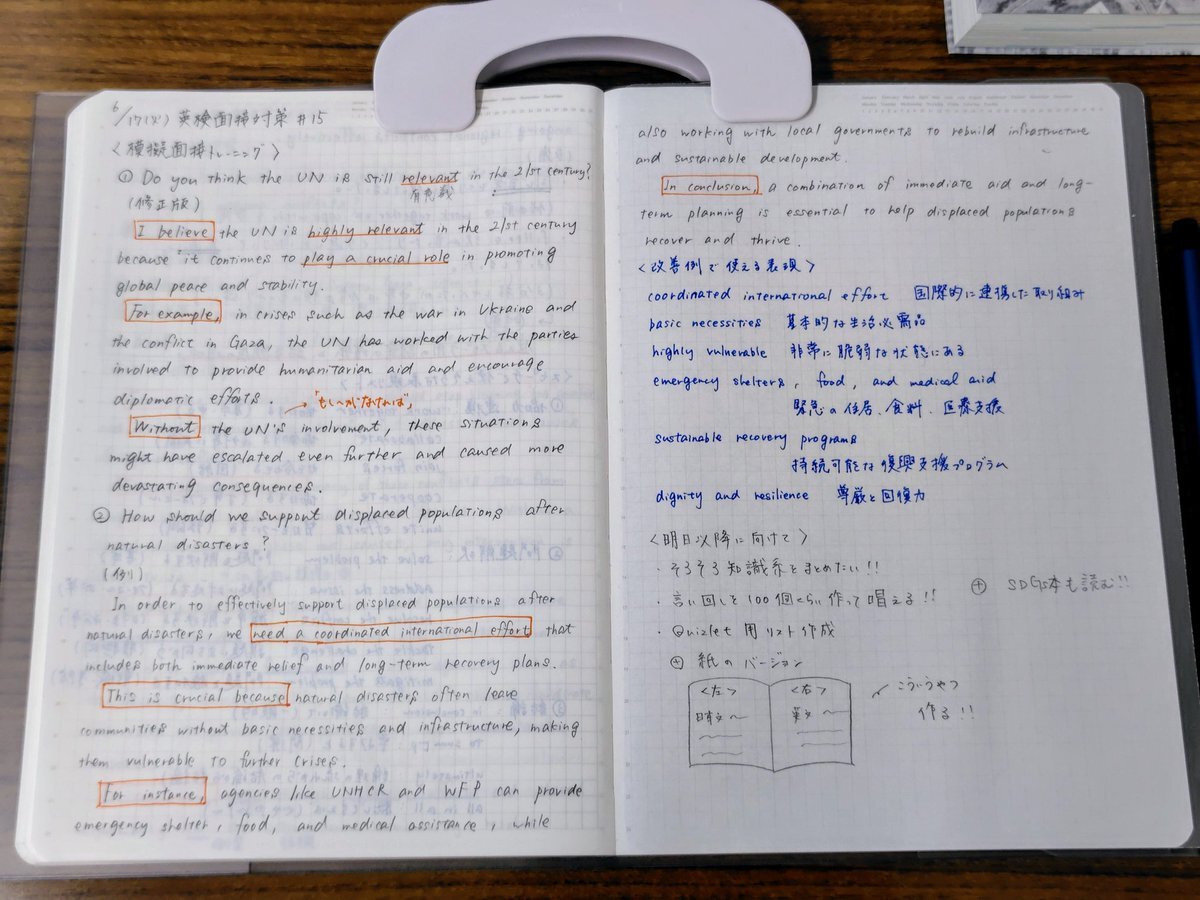 6/17(火) 英検面接対策 #15
<模擬面接トレーニング>
① Do you think the UN is still relevant in the 21st century?
(修正版) 有意義
I believe the UN is highly relevant in the 21st century
because it continues to play a crucial role in promoting
global peace and stability.
For example, in crises such as the war in Ukraine and
the conflict in Gaza, the UN has worked with the parties
involved to provide humanitarian aid and encourage
diplomatic efforts.
"もし〜がなければ"
Without the UN's involvement, these situations
might have escalated even further and caused more
devastating consequences.
② How should we support displaced populations after
natural disasters?
(例)
In order to effectively support displaced populations after
natural disasters, we need a coordinated international effort that
includes both immediate relief and long-term recovery plans.
This is crucial because natural disasters often leave
communities without basic necessities and infrastructure, making
them vulnerable to further crises.
For instance, agencies like UNHCR and WFP can provide
emergency shelter, food, and medical assistance, while
also working with local governments to rebuild infrastructure
and sustainable development.
In conclusion, a combination of immediate aid and long-
term planning is essential to help displaced populations
recover and thrive.
<改善例で使える表現>
coordinated international effort 国際的に連携した取り組み
basic necessities 基本的な生活必需品
highly vulnerable 非常に脆弱な状態にある
emergency shelters, food, and medical aid
緊急の住居、食料、医療支援
sustainable recovery programs
持続可能な復興支援プログラム
dignity and resilience 尊厳と回復力
<明日以降に向けて>
・そろそろ知識系をまとめたい!!
⊕ SDGs本も読む!!
・言い回しを100個くらい作って唱える!!
・Quizlet用リスト作成
⊕ 紙のバージョン
<左> <右>
日本文〜 英文〜
こういうやつ
作る!!